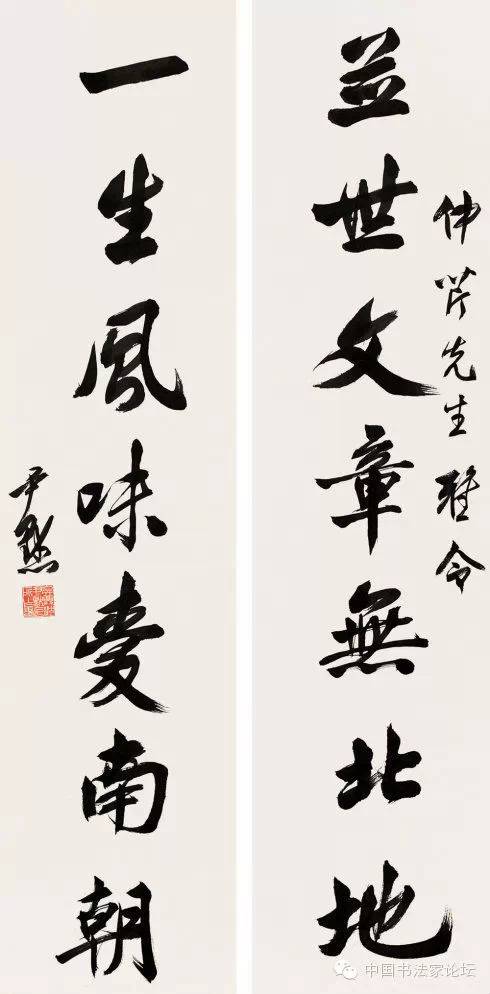 並世文章無北地
仲芹先生雅令
一生風味愛南朝
尹默
中国书法家论坛